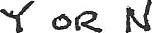 Y OR N